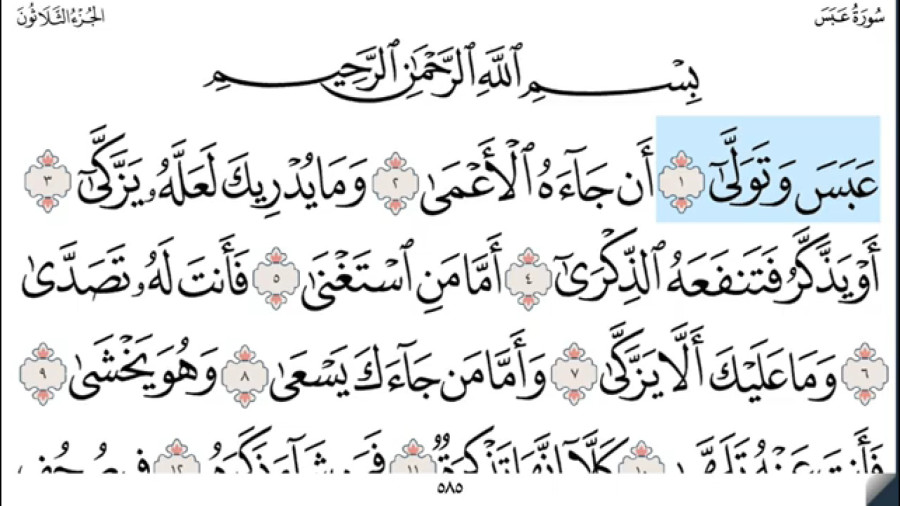 سُورَةُ عَبَسَ
الجُزْءُ الثَّلَاثُونَ
بِسْمِ ٱللَّهِ ٱلرَّحْمَٰنِ ٱلرَّحِيمِ
عَبَسَ وَتَوَلَّىٰٓ ١ أَن جَآءَهُ ٱلْأَعْمَىٰ ٢ وَمَا يُدْرِيكَ لَعَلَّهُۥ يَزَّكَّىٰٓ ٣
أَوْ يَذَّكَّرُ فَتَنفَعَهُ ٱلذِّكْرَىٰٓ ٤ أَمَّا مَنِ ٱسْتَغْنَىٰ ٥ فَأَنتَ لَهُۥ تَصَدَّىٰ
٦ وَمَا عَلَيْكَ أَلَّا يَزَّكَّىٰ ٧ وَأَمَّا مَن جَآءَكَ يَسْعَىٰ ٨ وَهُوَ يَخْشَىٰ ٩
فَأَنتَ عَنْهُ تَلَهَّىٰ ١٠ كَلَّآ إِنَّهَا تَذْكِرَةٌ ١١ فَمَن شَآءَ ذَكَرَهُۥ ١٢ فِى صُحُفٍ
٥٨٥